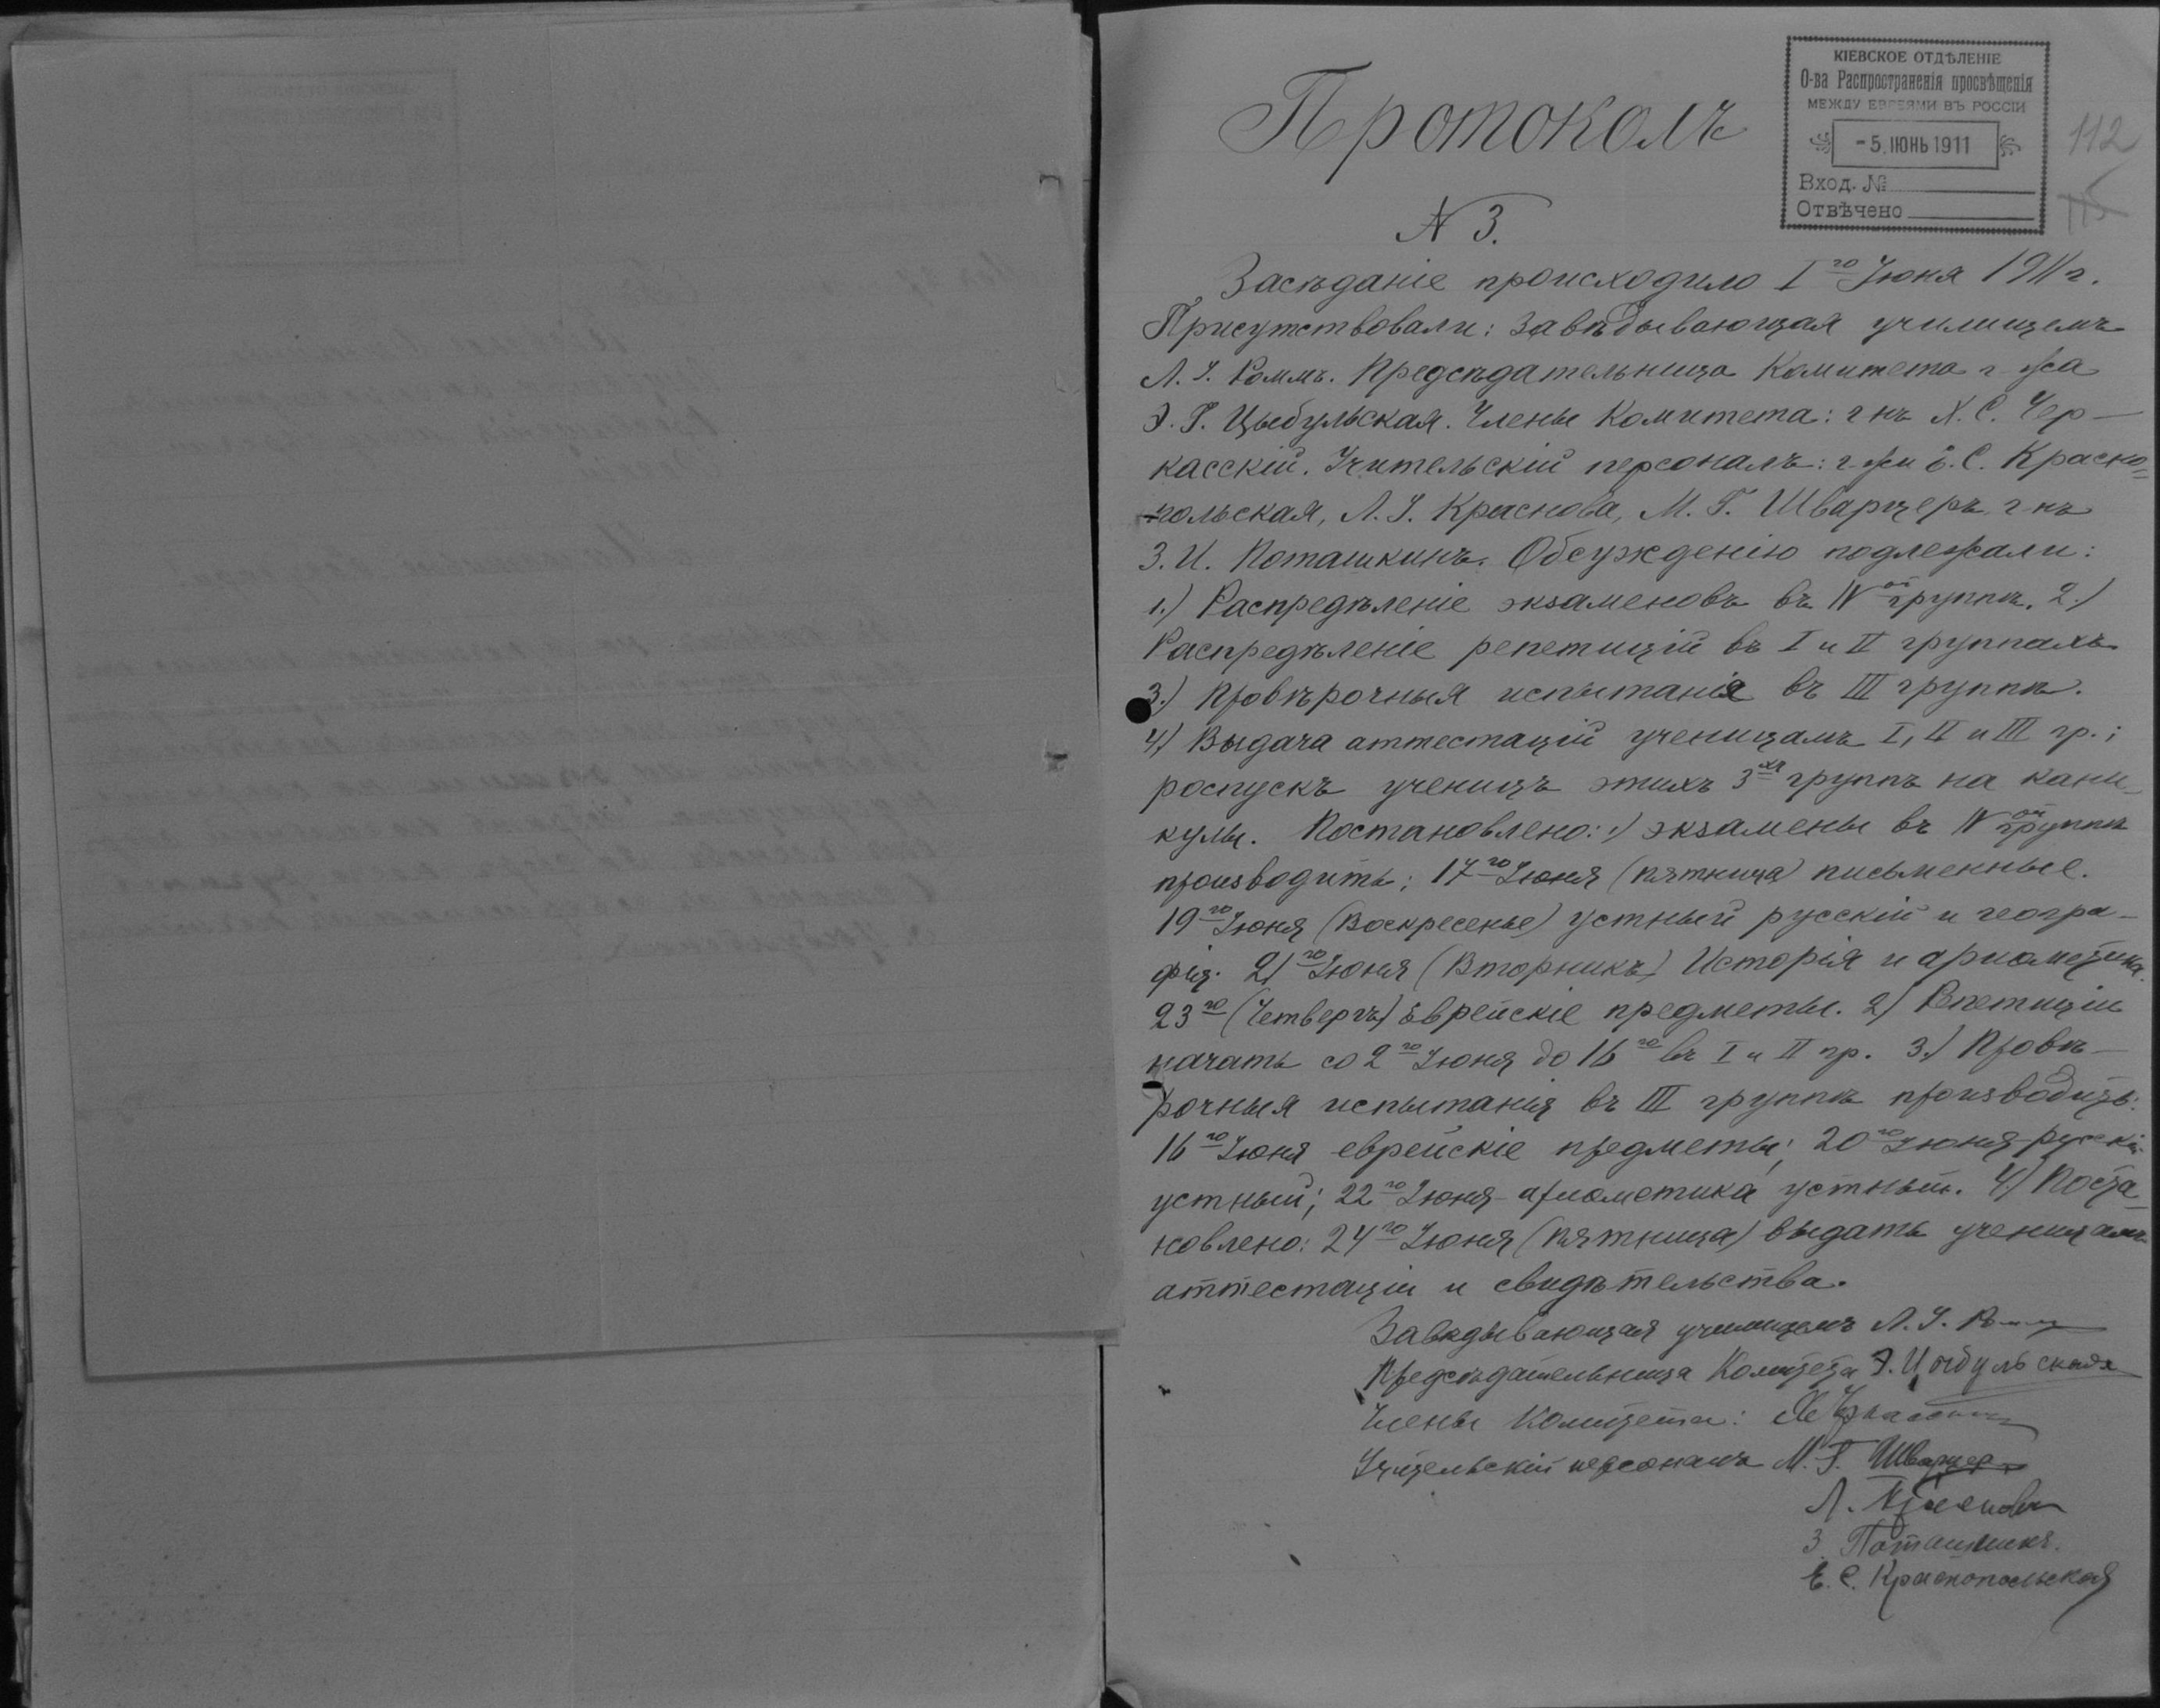 КІЕВСКОЕ ОТДѢЛЕНІЕ
О-ва Распространенія просвѣщенія
МЕЖДУ ЕВРЕЯМИ ВЪ РОССІИ
-5. ІЮНЬ 1911
Вход. №
Отвѣчено
112
115
Протоколъ
N 3.
Засѣданіе происходило I го Іюня 1911 г.
Присутствовали: Завѣдывающая училищемъ
Л. І. Роммъ. Предсѣдательница Комитета г-жа
Э. Г. Цыбульская. Члены Комитета: г-нъ Х. С. Чер-
касскій. Учительскій персоналъ: г-жи Е. С. Красно=
польская, Л. І. Краснова, М. Г. Шварцеръ, г-нъ
З. И. Поташкинъ. Обсужденію подлежали:
1.) Распредѣленіе экзаменовъ въ IV ой группѣ. 2.)
Распредѣленіе репетицій въ I и II группахъ
3.) Провѣрочныя испытанія въ III группѣ.
4) Выдача аттестацій ученицамъ I, II и III гр.;
роспускъ ученицъ этихъ 3 хъ группъ на кани-
кулы. Постановлено: 1) экзамены въ IV ой группѣ
производить: 17 го Іюня (пятница) письменные.
19 го Іюня (Воскресенье) устный русскій и геогра-
фія. 21 го Іюня (Вторникъ) Исторія и ариометика.
23 го (Четвергъ) Еврейскіе предметы. 2) Репетиціи
начать со 2 го Іюня до 16 го въ I и II гр. 3.) Провѣ-
рочныя испытанія въ III группѣ производить:
16 го Іюня еврейскіе предметы; 20 го Іюня русскій
устный; 22 го Іюня - ариометика устный. 4) Поста=
новлено: 24 го Іюня (пятница) выдать ученицамъ
аттестаціи и свидѣтельства.
Завѣдывающая училищемъ Л. І. Роммъ
Предсѣдательница Комитета Э. Цыбульская
Члены Комитета:
Учительскій персоналъ М. Г. Шварцеръ
Л. Краснова
З. Поташкинъ.
Е. С. Краснопольская